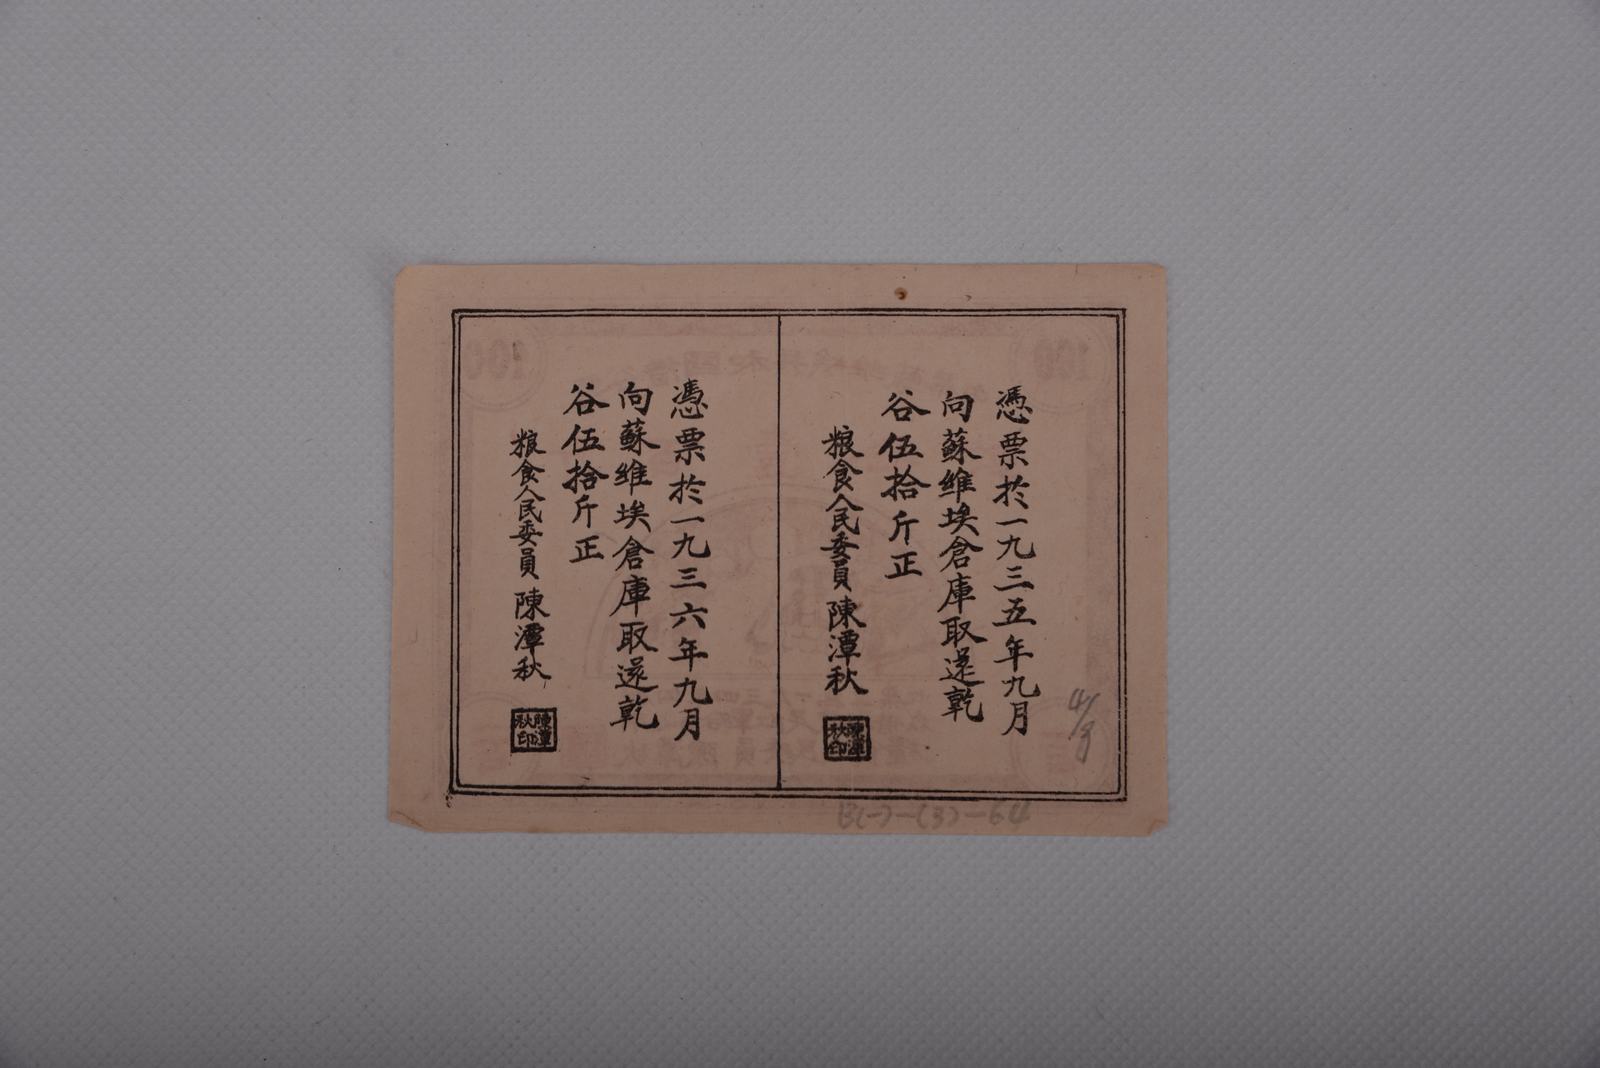 憑票於一九三五年九月
向蘇維埃倉庫取還乾
谷伍拾斤正
粮食人民委員 陳潭秋
陳潭秋印
憑票於一九三六年九月
向蘇維埃倉庫取還乾
谷伍拾斤正
粮食人民委員 陳潭秋
陳潭秋印
B(一)-(3)-64
100
100